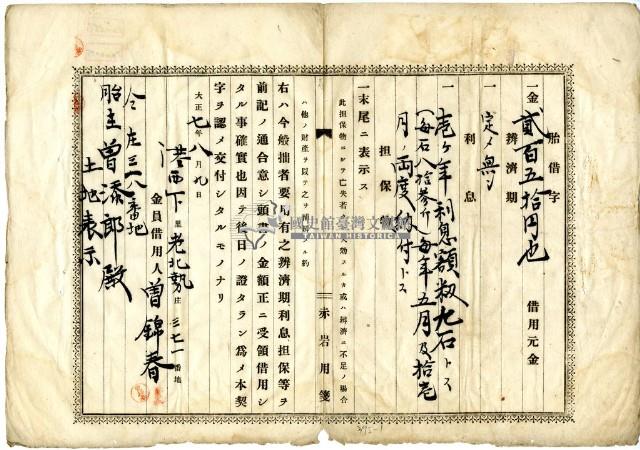 胎借字
一金貳百五拾円也　借用元金
辨濟期
一　定メ無シ
利息
一　壱ヶ年利息額籾九石トス
（每石八拾參斤）每年五月及拾壱
月ノ兩度納付トス
担保
一末尾ニ表示ス
此担保物
ハ他ノ財產ヲ以テ之ヲ
赤岩用箋
右ハ今般拙者要用有之辨濟期利息担保等ヲ
前記ノ通合意シ頭書ノ金額正ニ受領借用シ
タル事確實也因テ後日ノ證タラン爲メ本契
字ヲ認メ交付シタルモノナリ
大正七年八月九日
港西下里老北勢庄三七一番地
金員借用人　曾錦春
仝庄三一八番地
胎主曾添郎殿
土地表示
國史館臺灣文獻館
TAIWAN HISTORICA